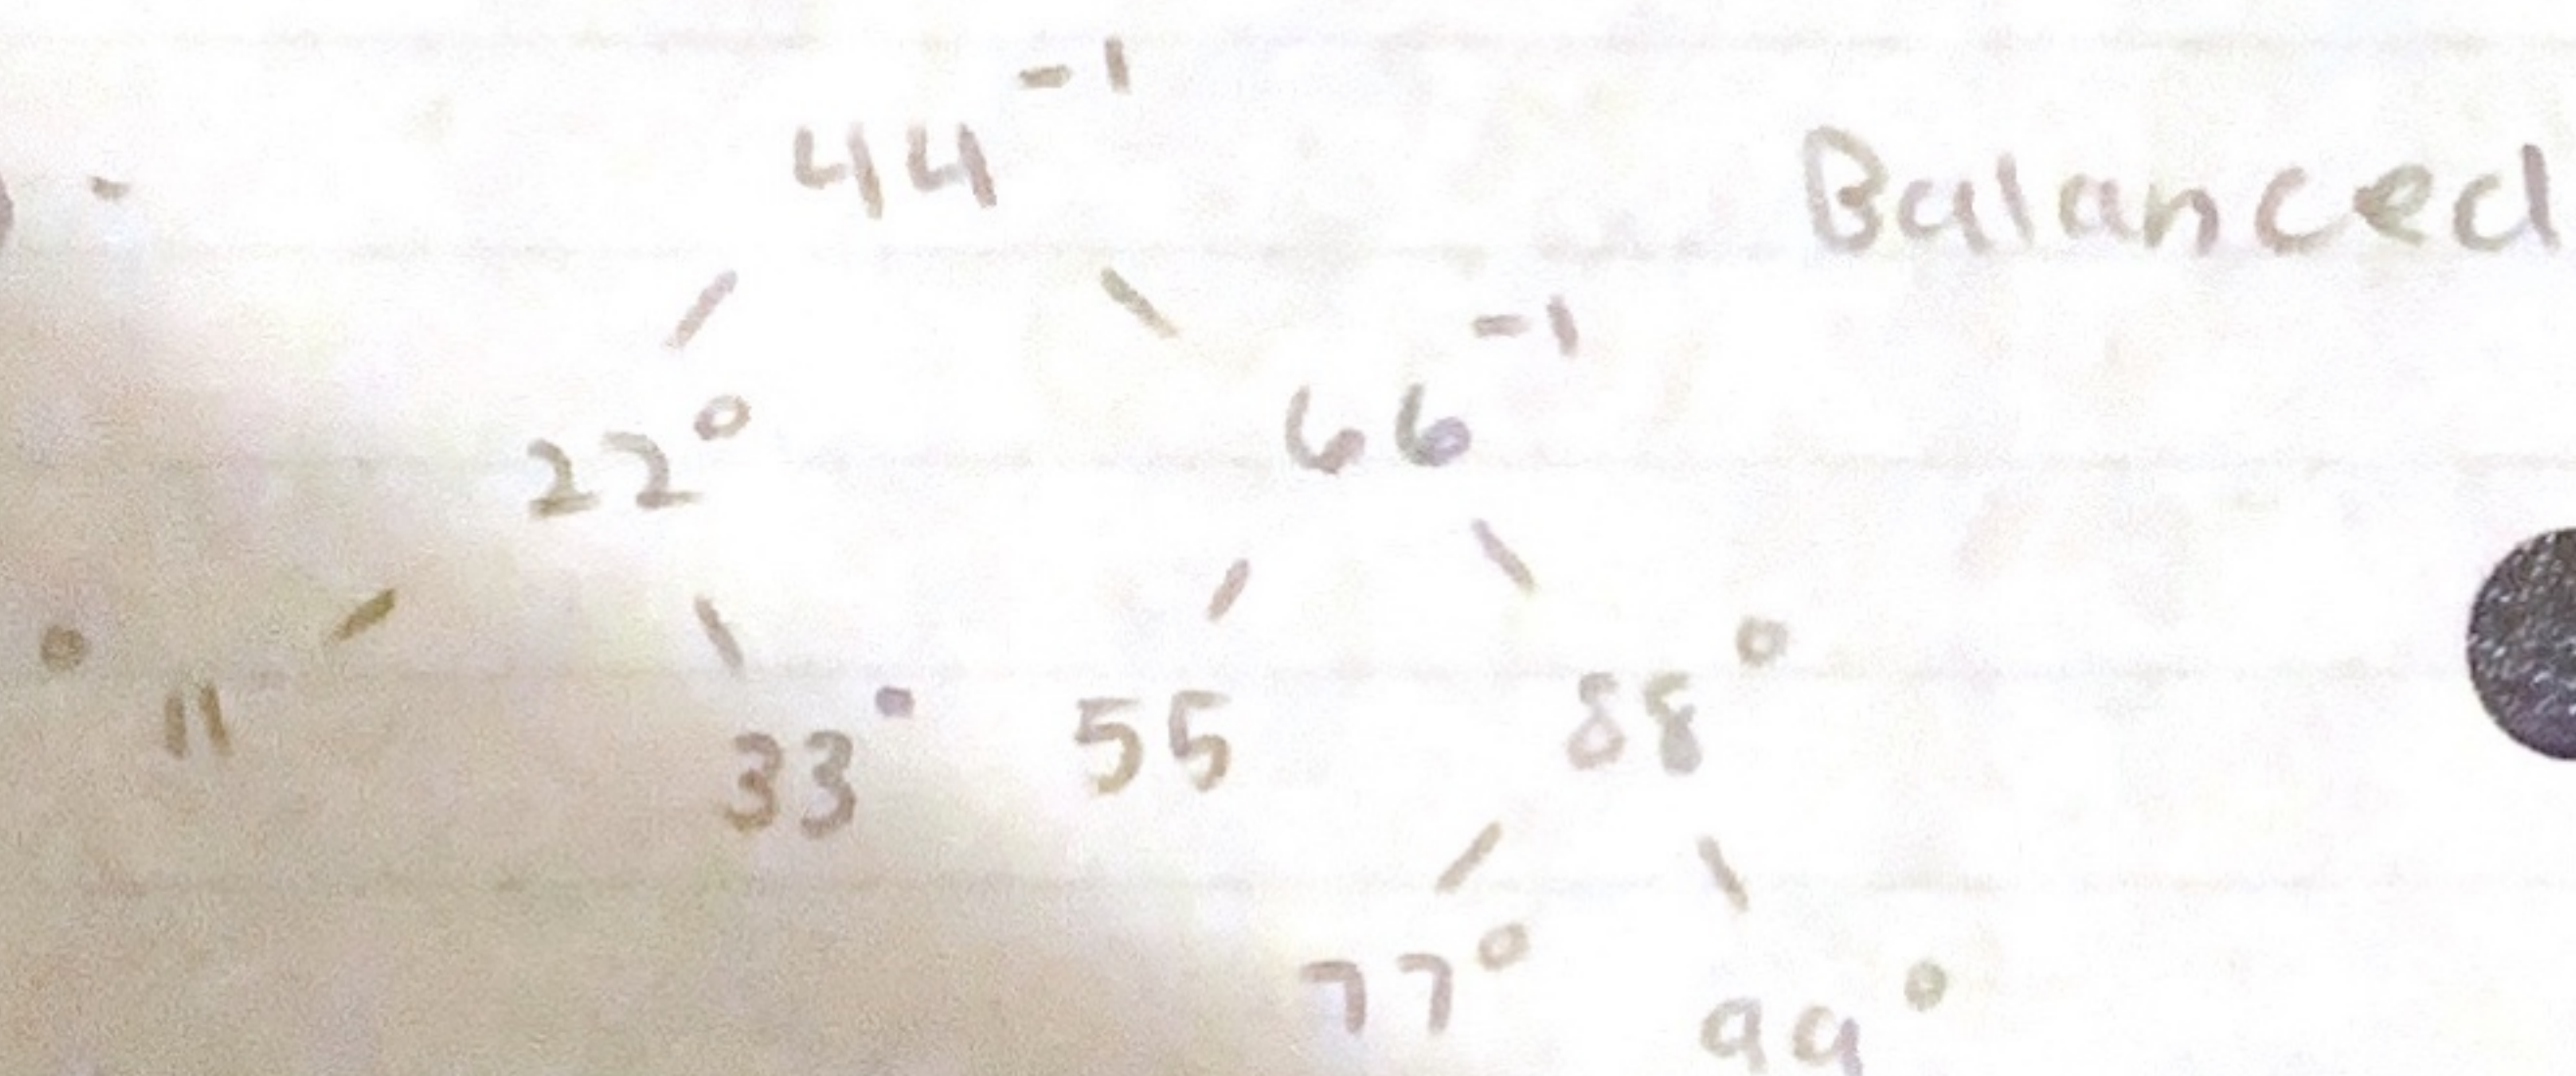 44 -1
Balanced
22 0
66 -1
0 11
33 0
55
88 0
77 0
99 0